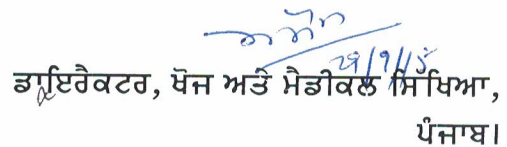 ਡਾਇਰੈਕਟਰ, ਖੋਜ ਅਤੇ ਮੈਡੀਕਲ ਸਿੱਖਿਆ,
ਪੰਜਾਬ।